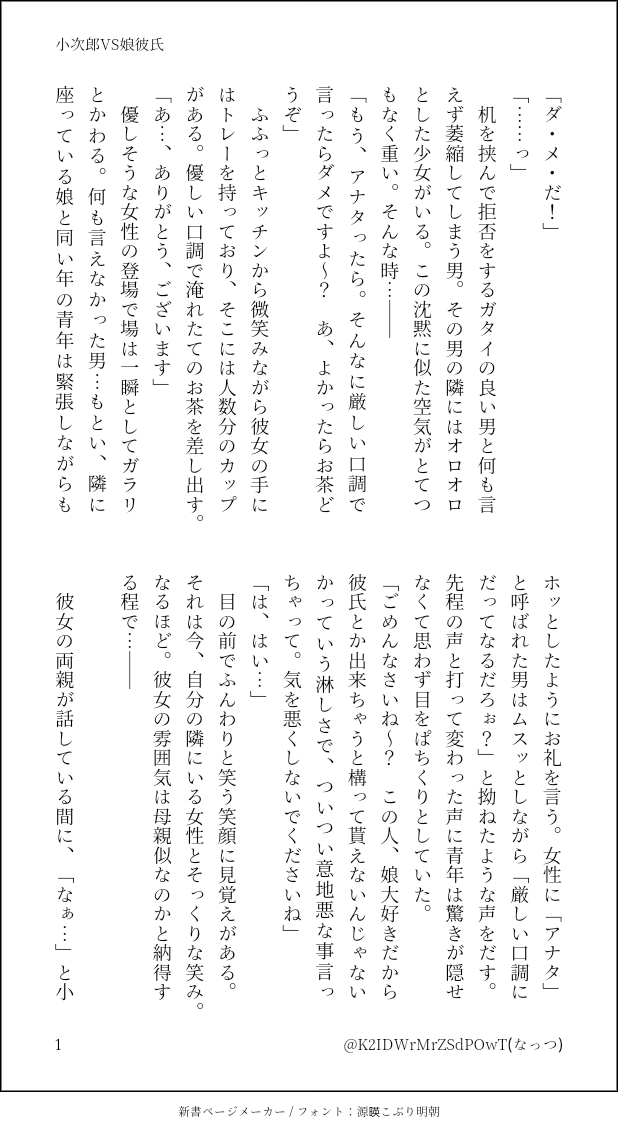 小次郎VS娘彼氏
「ダ・メ・だ！」
「……っ」
　机を挟んで拒否をするガタイの良い男と何も言
えず萎縮してしまう男。その男の隣にはオロオロ
とした少女がいる。この沈黙に似た空気がとてつ
もなく重い。そんな時…――
「もう、アナタったら。そんなに厳しい口調で
言ったらダメですよ〜？　あ、よかったらお茶ど
うぞ」
　ふふっとキッチンから微笑みながら彼女の手に
はトレーを持っており、そこには人数分のカップ
がある。優しい口調で淹れたてのお茶を差し出す。
「あ…、ありがとう、ございます」
　優しそうな女性の登場で場は一瞬としてガラリ
とかわる。何も言えなかった男…もとい、隣に
座っている娘と同い年の青年は緊張しながらも
ホッとしたようにお礼を言う。女性に「アナタ」
と呼ばれた男はムスッとしながら「厳しい口調に
だってなるだろぉ？」と拗ねたような声をだす。
先程の声と打って変わった声に青年は驚きが隠せ
なくて思わず目をぱちくりとしていた。
「ごめんなさいね〜？　この人、娘大好きだから
彼氏とか出来ちゃうと構って貰えないんじゃない
かっていう淋しさで、ついつい意地悪な事言っ
ちゃって。気を悪くしないでくださいね」
「は、はい…」
　目の前でふんわりと笑う笑顔に見覚えがある。
それは今、自分の隣にいる女性とそっくりな笑み。
なるほど。彼女の雰囲気は母親似なのかと納得す
る程で…――
　彼女の両親が話している間に、「なぁ…」と小
1
@K2IDWrMrZSdPOwT(なっつ)
新書ページメーカー / フォント：源暎こぶり明朝